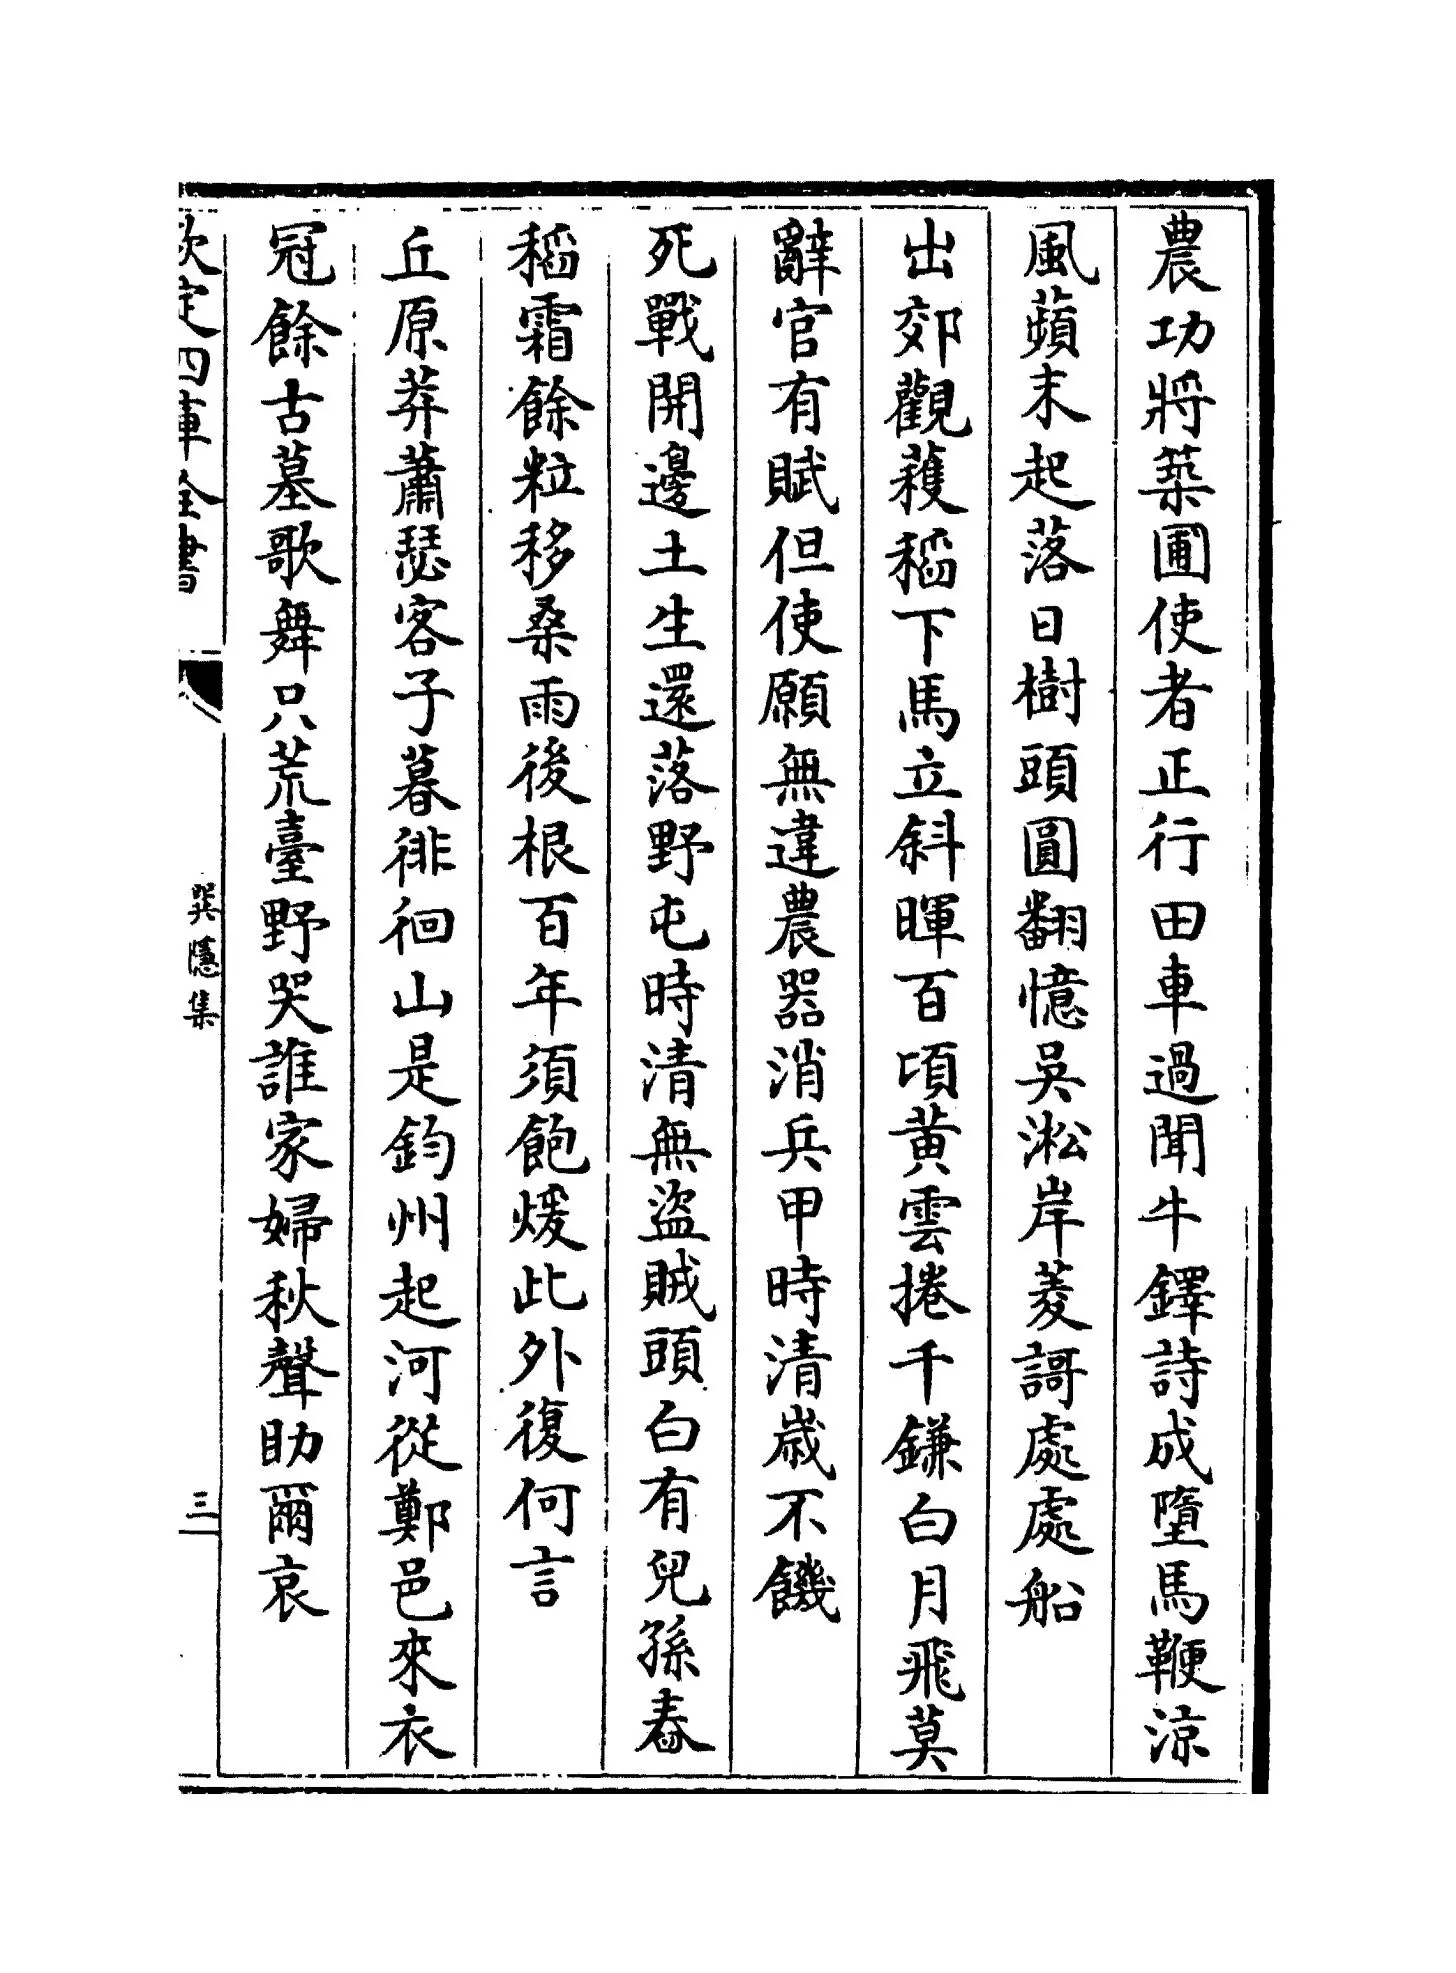 農功將築圃使者正行田車過聞牛鐸詩成墮馬鞭涼
風蘋末起落日樹頭圓翻憶吳淞岸菱謌處處船
出郊觀穫稻下馬立斜暉百頃黃雲捲千鎌白月飛莫
辭官有賦但使願無違農器消兵甲時清歲不饑
死戰開邊土生還落野屯時清無盜賊頭白有兒孫舂
稻霜餘粒移桑雨後根百年須飽煖此外復何言
丘原莽蕭瑟客子暮徘徊山是鈞州起河從鄭邑來衣
冠餘古墓歌舞只荒臺野哭誰家婦秋聲助爾哀
欽定四庫全書
巽隱集
三